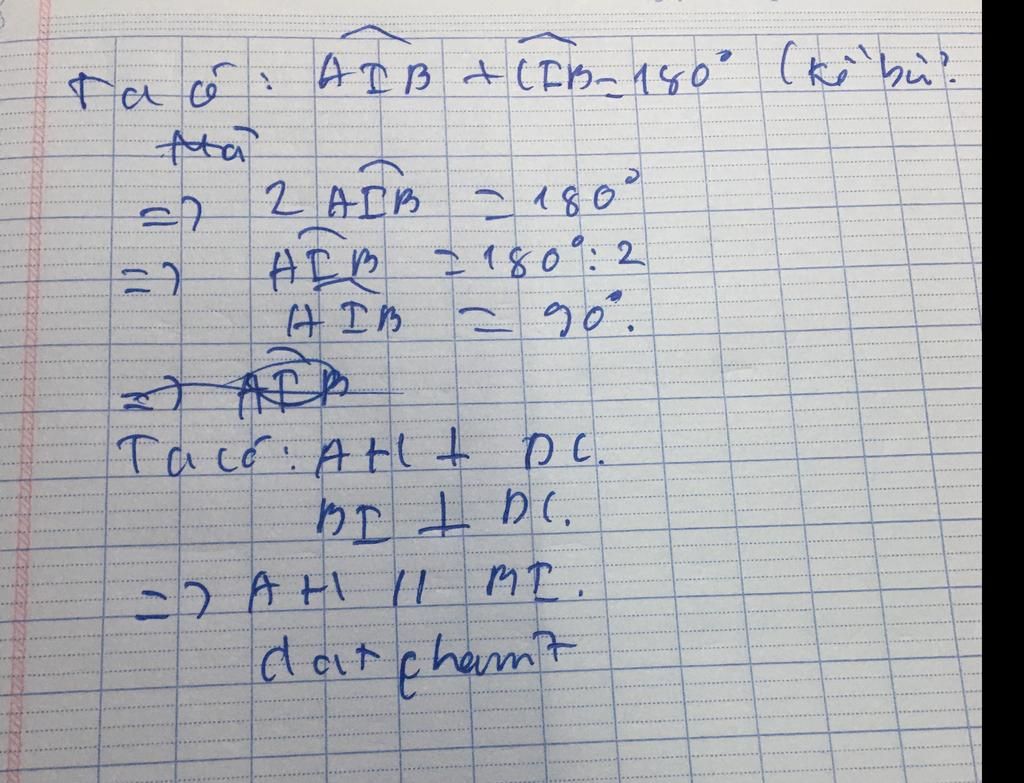 Ta có: AIB + CIB = 180° (kề bù).
Mà
=> 2 AIB = 180°
=> AIB = 180° : 2
AIB = 90°.
=> AIB
Ta có: AH ⊥ DC.
BI ⊥ DC.
=> AH // BI.